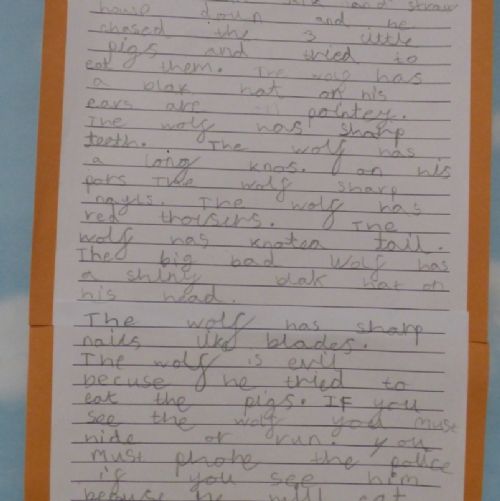 and straw
house down and he
chased the 3 little
pigs and tried to
eat them. The wolf has
a blak hat on his
ears are pointey.
The wolf has sharp
teeth. The wolf has
a long knos. on his
pors The wolf sharp
nayls. The wolf has
red thoisers. The
wolf has knoten tail.
The big bad wolf has
a shiny blak hat on
his head.
The wolf has sharp
nails like blades.
The wolf is evil
becuse he tried to
eat the pigs. If you
see the wolf you must
hide or run. you
must phone the police
if you see him
because he will eat